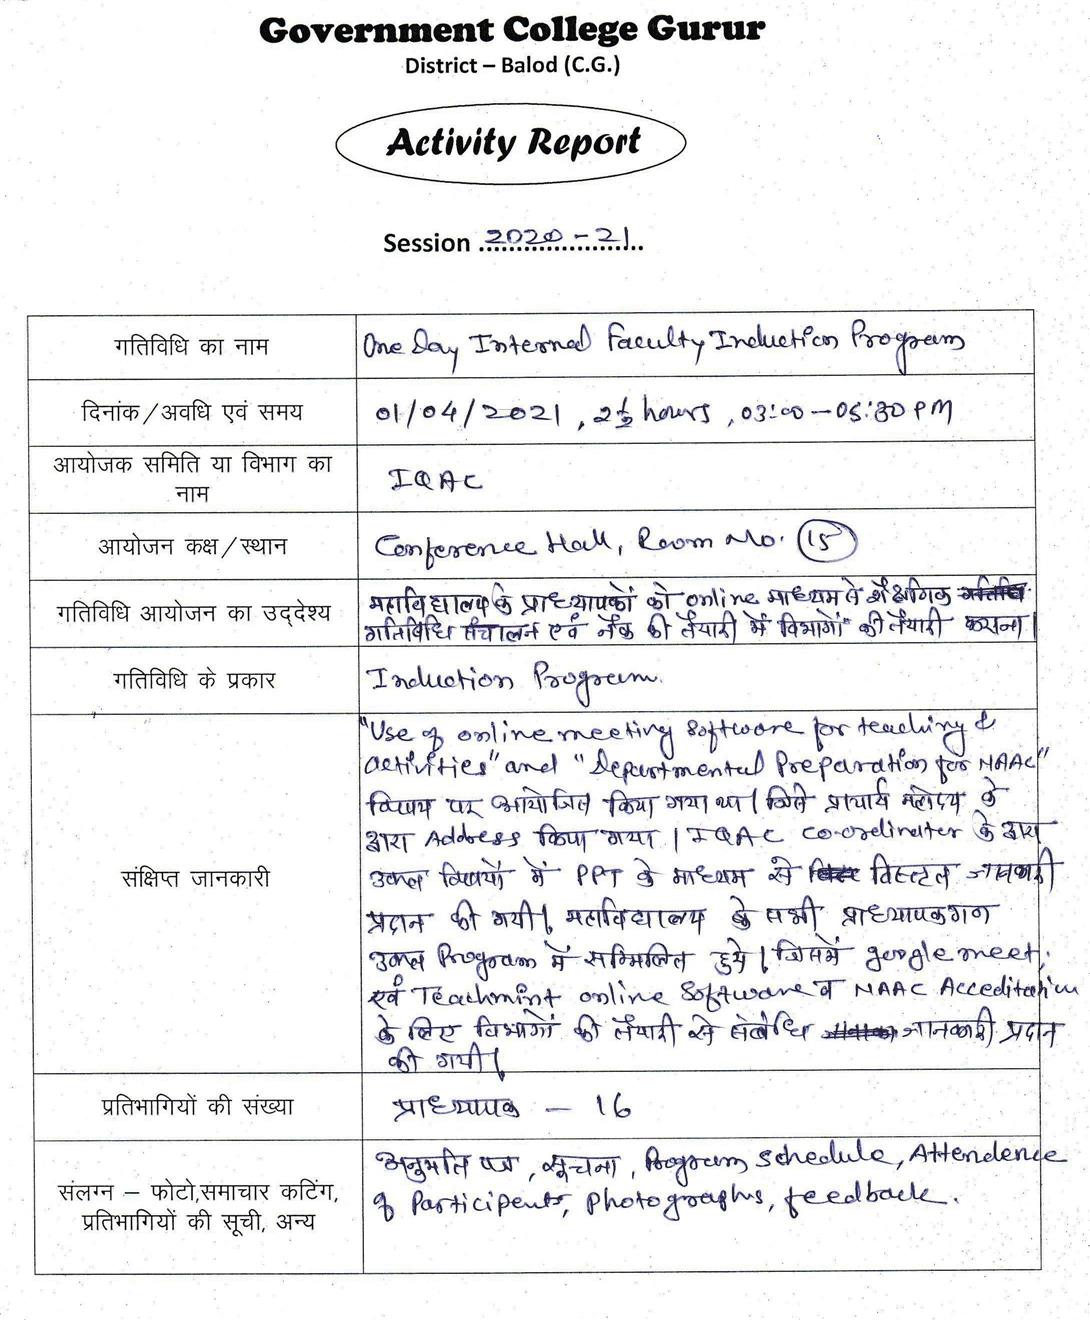 Government College Gurur
District – Balod (C.G.)
Activity Report
Session 2020-21
गतिविधि का नाम
One Day Internal Faculty Induction Program
दिनांक/अवधि एवं समय
01/04/2021, 2½ hours, 03:00-05:30 PM
आयोजक समिति या विभाग का
नाम
IQAC
आयोजन कक्ष/स्थान
Conference Hall, Room No. 15
गतिविधि आयोजन का उद्देश्य
महाविद्यालय के प्राध्यापकों को online माध्यम से शैक्षणिक
गतिविधि संचालन एवं नैक की तैयारी में विभागों की तैयारी कराना।
गतिविधि के प्रकार
Induction Program.
संक्षिप्त जानकारी
"Use of online meeting Software for teaching &
activities" and "Departmental Preparation for NAAC"
विषय पर आयोजित किया गया था। जिसे प्राचार्य महोदय के
द्वारा Address किया गया। IQAC Co-ordinator के द्वारा
उक्त विषयों में PPT के माध्यम से विस्तृत जानकारी
प्रदान की गयी। महाविद्यालय के सभी प्राध्यापकगण
उक्त Program में सम्मिलित हुये। जिसमें google meet,
एवं Teachmint online Software व NAAC Acceditation
के लिए विभागों की तैयारी से संबंधि जानकारी प्रदान
की गयी।
प्रतिभागियों की संख्या
प्राध्यापक - 16
संलग्न – फोटो,समाचार कटिंग,
प्रतिभागियों की सूची, अन्य
अनुमति पत्र, सूचना, Program schedule, Attendence
of Participents, Photographs, feedback.